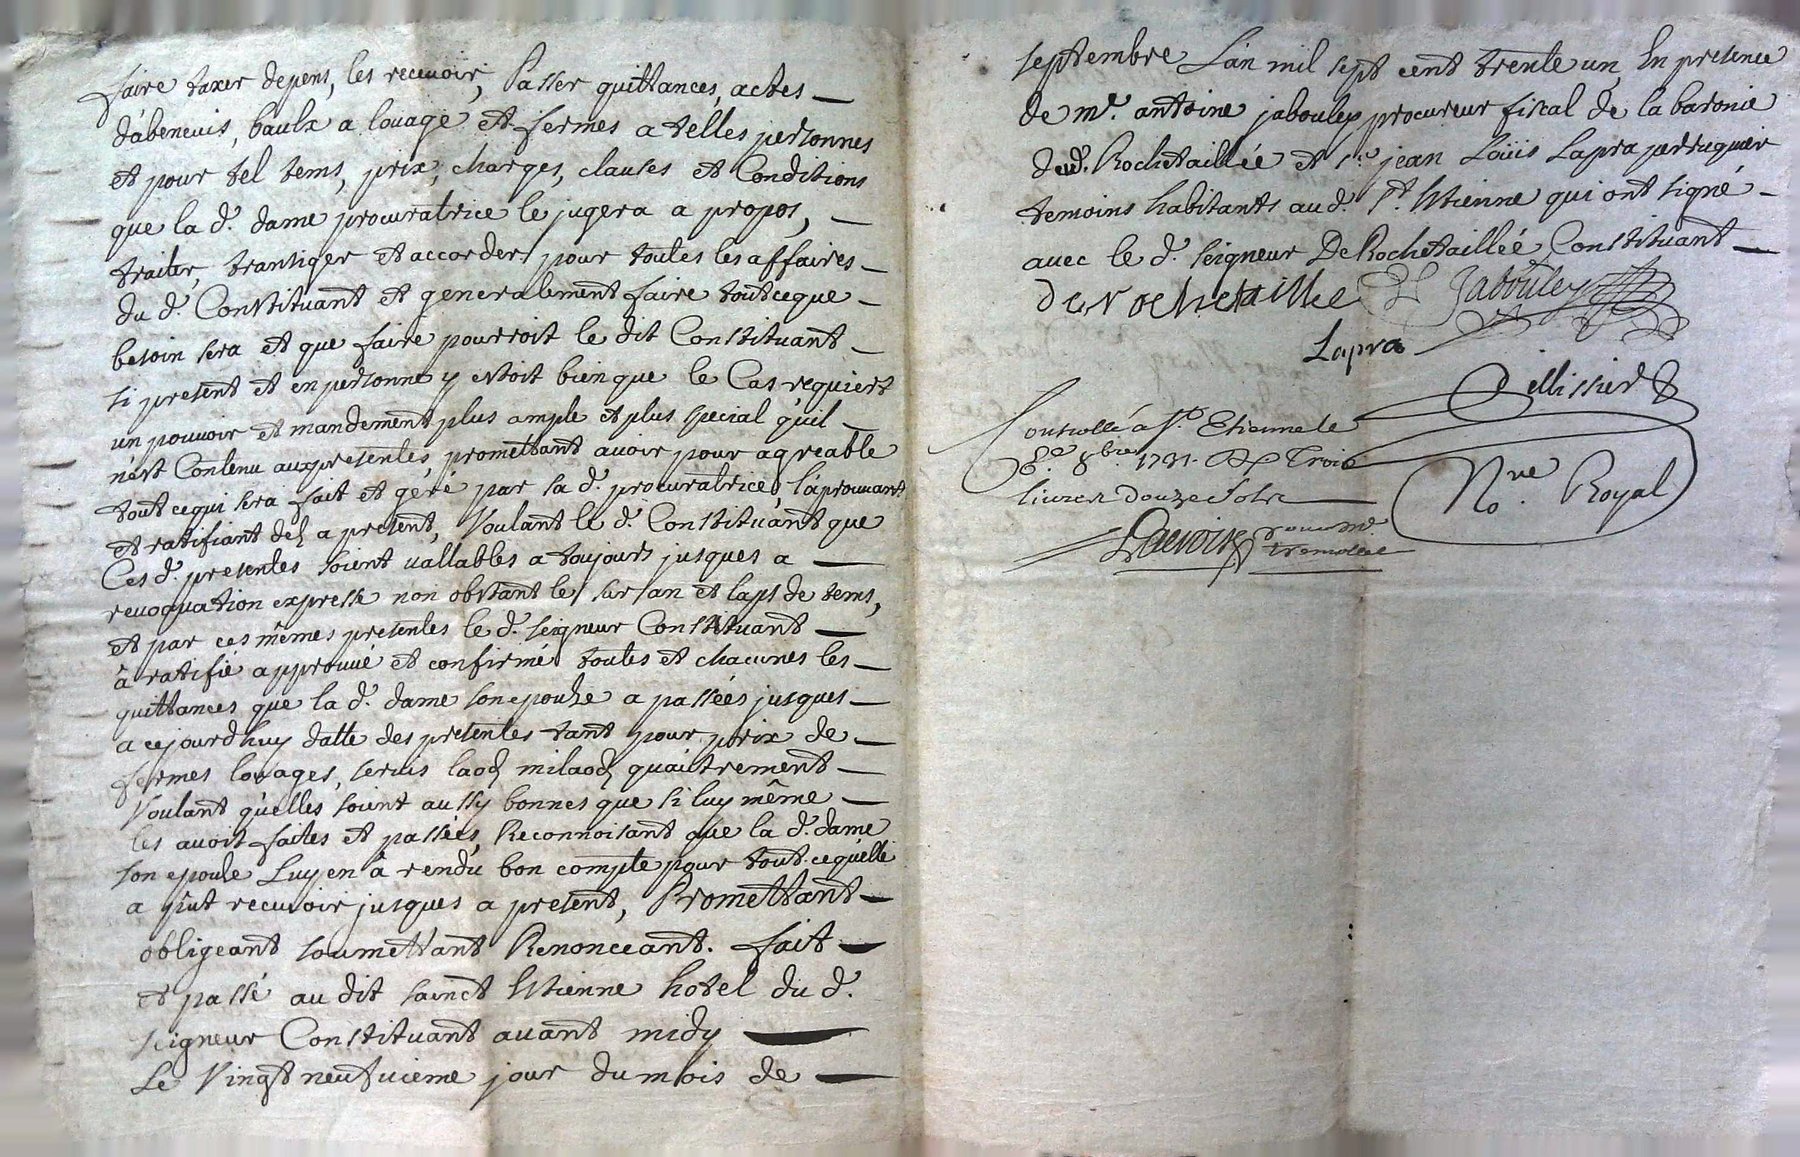 faire taxer depens, les recevoir, Passer quittances, actes
d'abenevis, baulx a louage et fermes a telles personnes
et pour tel tems, prix, charges, clauses et Conditions
que la d. dame procuratrice le jugera a propos,
traiter, transiger et accorder pour toutes les affaires
du d. Constituant et generalement faire tout ce que
besoin sera et que faire pourroit le dit Constituant
si present et en personne y estoit bien que le Cas requiert
un pouvoir et mandement plus ample et plus special qu'il
n'est Contenu aux presentes, promettant avoir pour agreable
tout ce qui sera fait et géré par sa d. procuratrice, l'aprouvant
et ratifiant des a present, Voulant le d. Constituant que
Ces d. presentes soient vallables a toujours jusques a
revoquation expresse non obstant le sur an et laps de tems,
et par ces mêmes presentes le d. seigneur Constituant
à ratifié approuvé et confirmé toutes et chacunes les
quittances que la d. dame son epouze a passées jusques
a cejourdhuy datte des presentes tant pour prix de
fermes louages, servis laods milaods qu'autrement
Voulant qu'elles soient aussy bonnes que si luy même
les avoit faites et passées, Reconnoisant que la d. dame
son epouze Luy en à rendu bon compte pour tout ce qu'elle
a put recevoir jusques a present, Promettant
obligeant soumettant Renonceant. fait
et passé au dit sainct Etienne hotel du d.
seigneur Constituant avant midy
Le Vingt neufvieme jour du mois de
septembre L'an mil sept cent trente un, En presence
de me. antoine jabouley procureur fiscal de la baronie
dud. Rochetaillée et sr. jean Loüis Lapra perruquier
temoins habitants aud. St. Etienne qui ont signé
avec le d. seigneur De Rochetaillée Constituant
de rochetaillee Jabouley
Lapra
Pellissier
Controllé à St. Etienne le
8e. 8bre 1731. Trois
livres Douze Sols
Nore. Royal